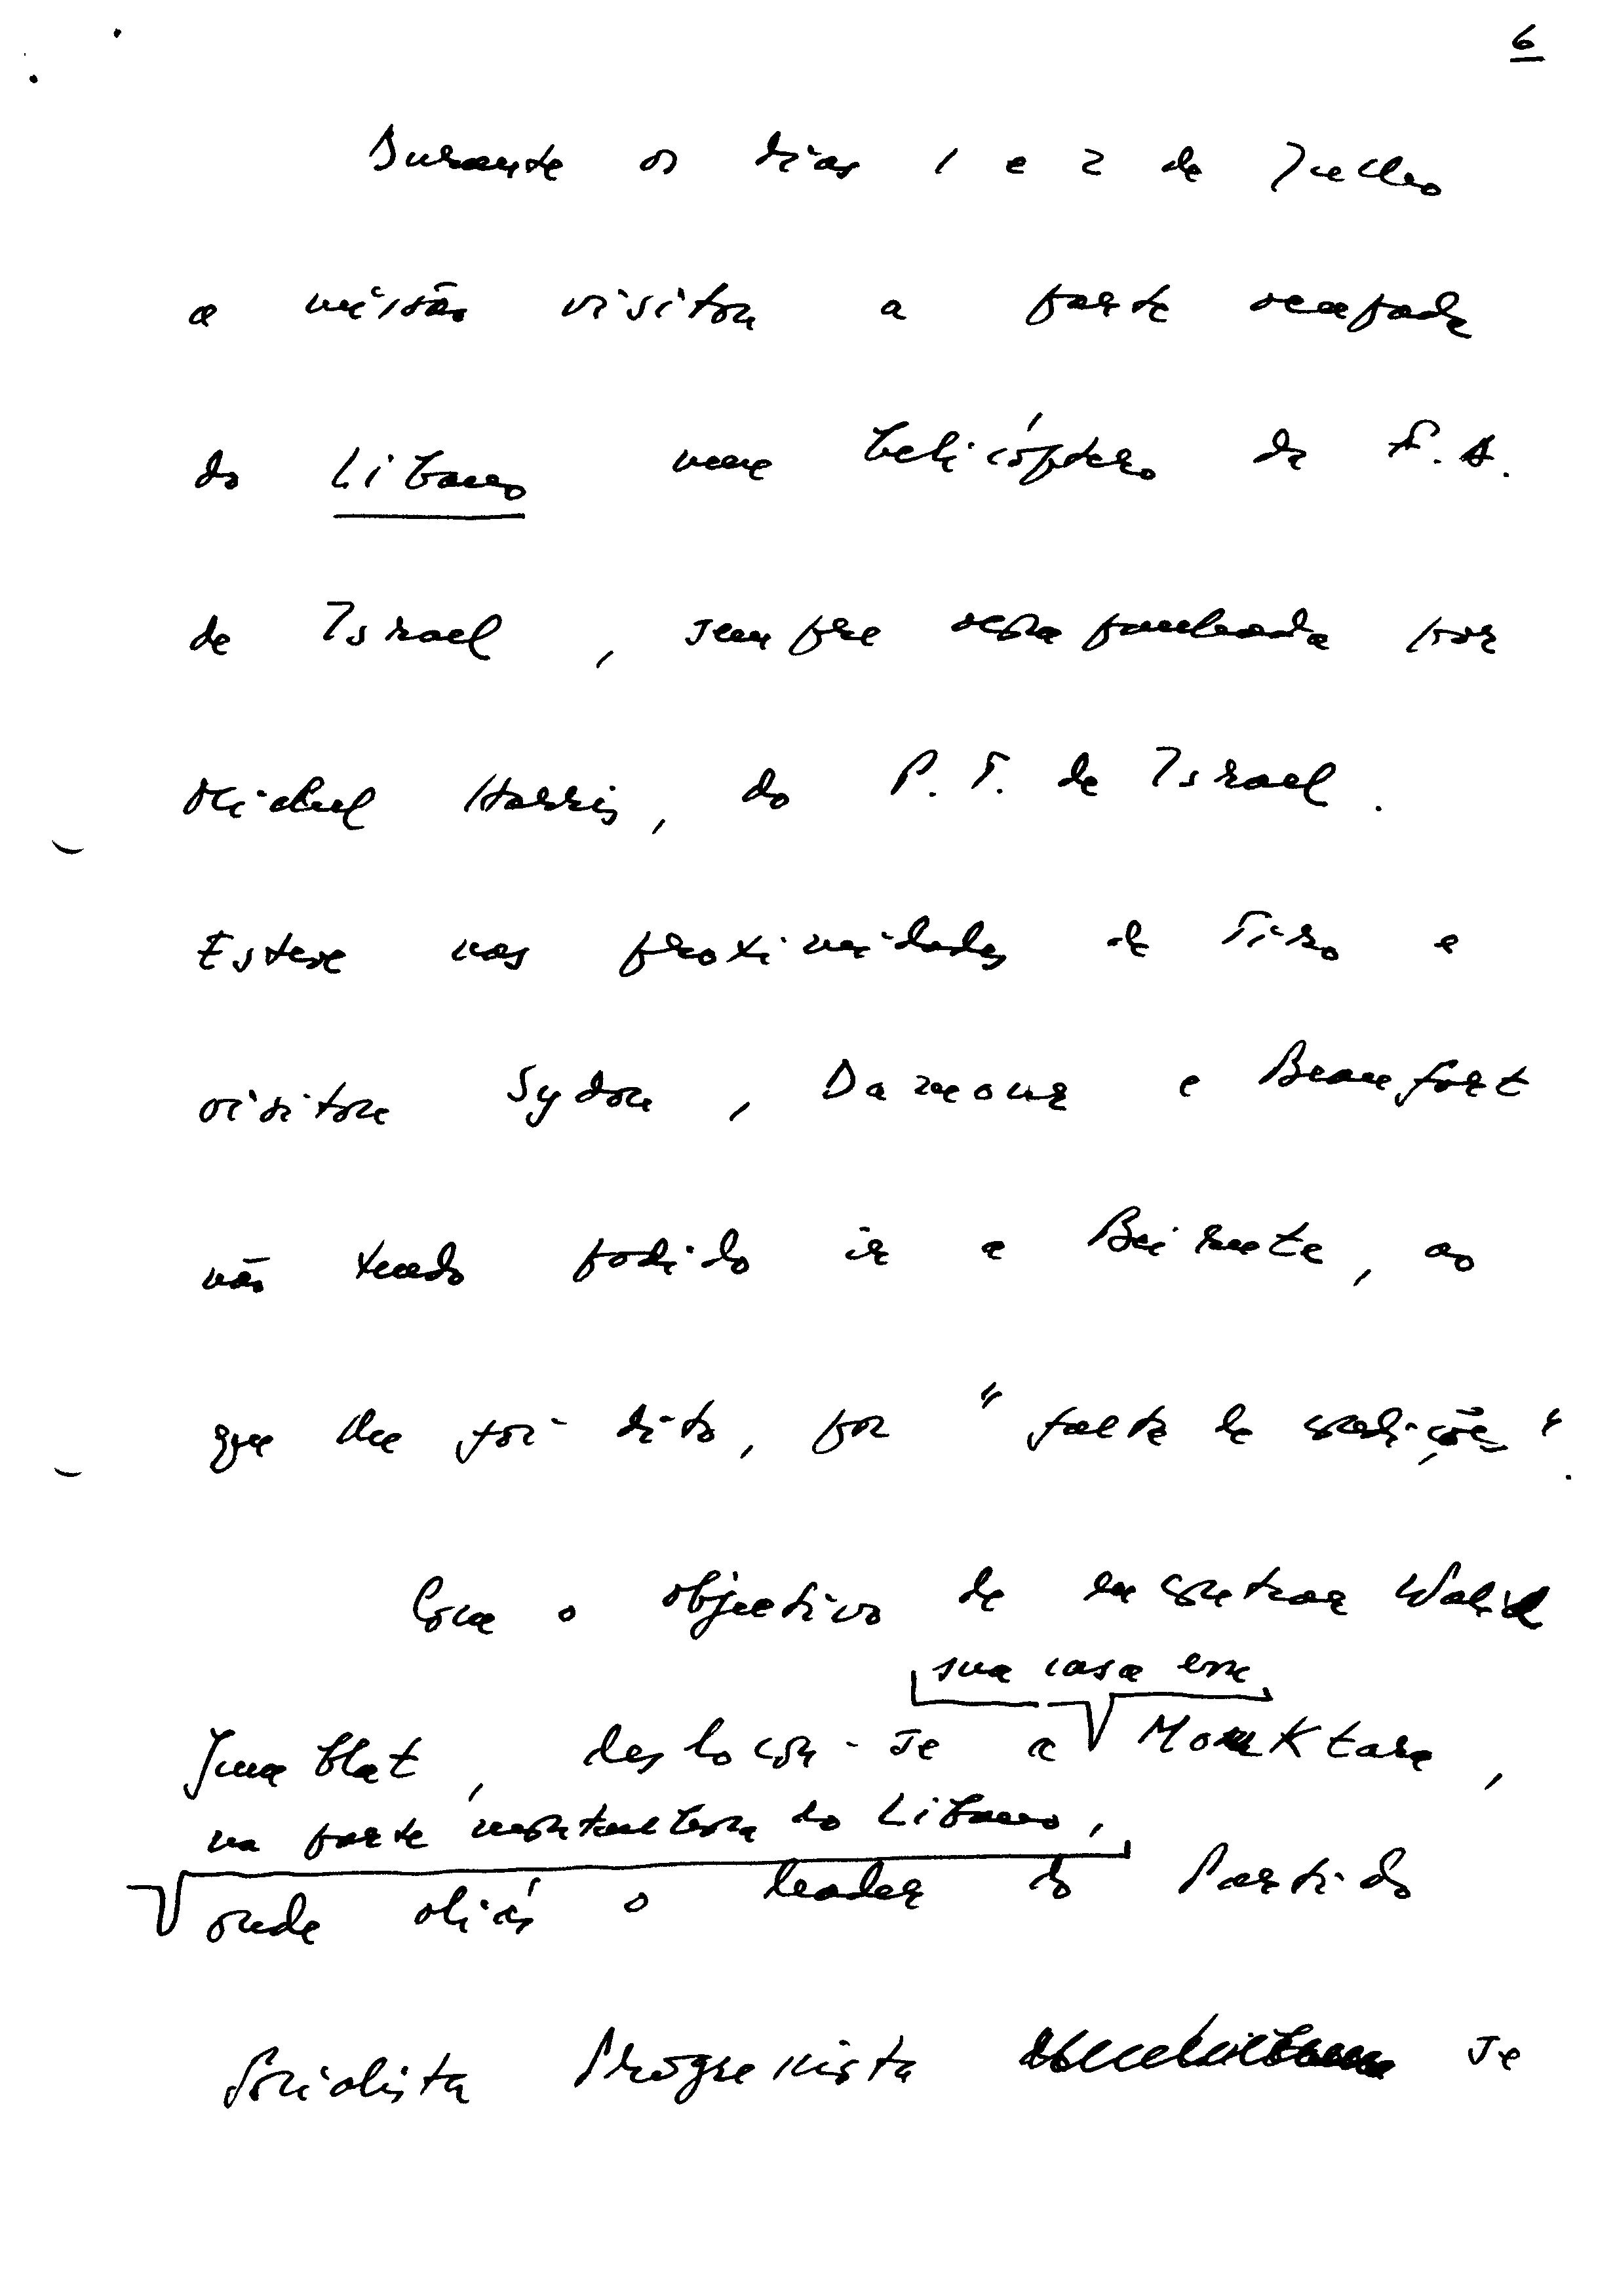 6
Durante os dias 1 e 2 de Julho
a missão visitou a parte ocupada
do Líbano num helicóptero da F.A.
de Israel, sempre acompanhada por
Michael Harris, do P.T. de Israel.
Esteve nas proximidades de Tiro e
visitou Sydon, Damour e Beaufort
não tendo podido ir a Beirute, ao
que lhe foi dito, por "falta de condições".
Com o objectivo de encontrar Walid
sua casa em
Jumblat, deslocou-se a Mouktara,
na parte montanhosa do Líbano,
onde aliás o leader do Partido
Socialista Progressista se